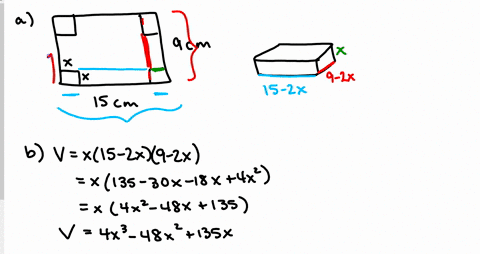 a)
9 cm
x
x
15 cm
x
9-2x
15-2x
b) V = x(15-2x)(9-2x)
= x(135-30x-18x+4x²)
= x(4x²-48x+135)
V = 4x³-48x²+135x